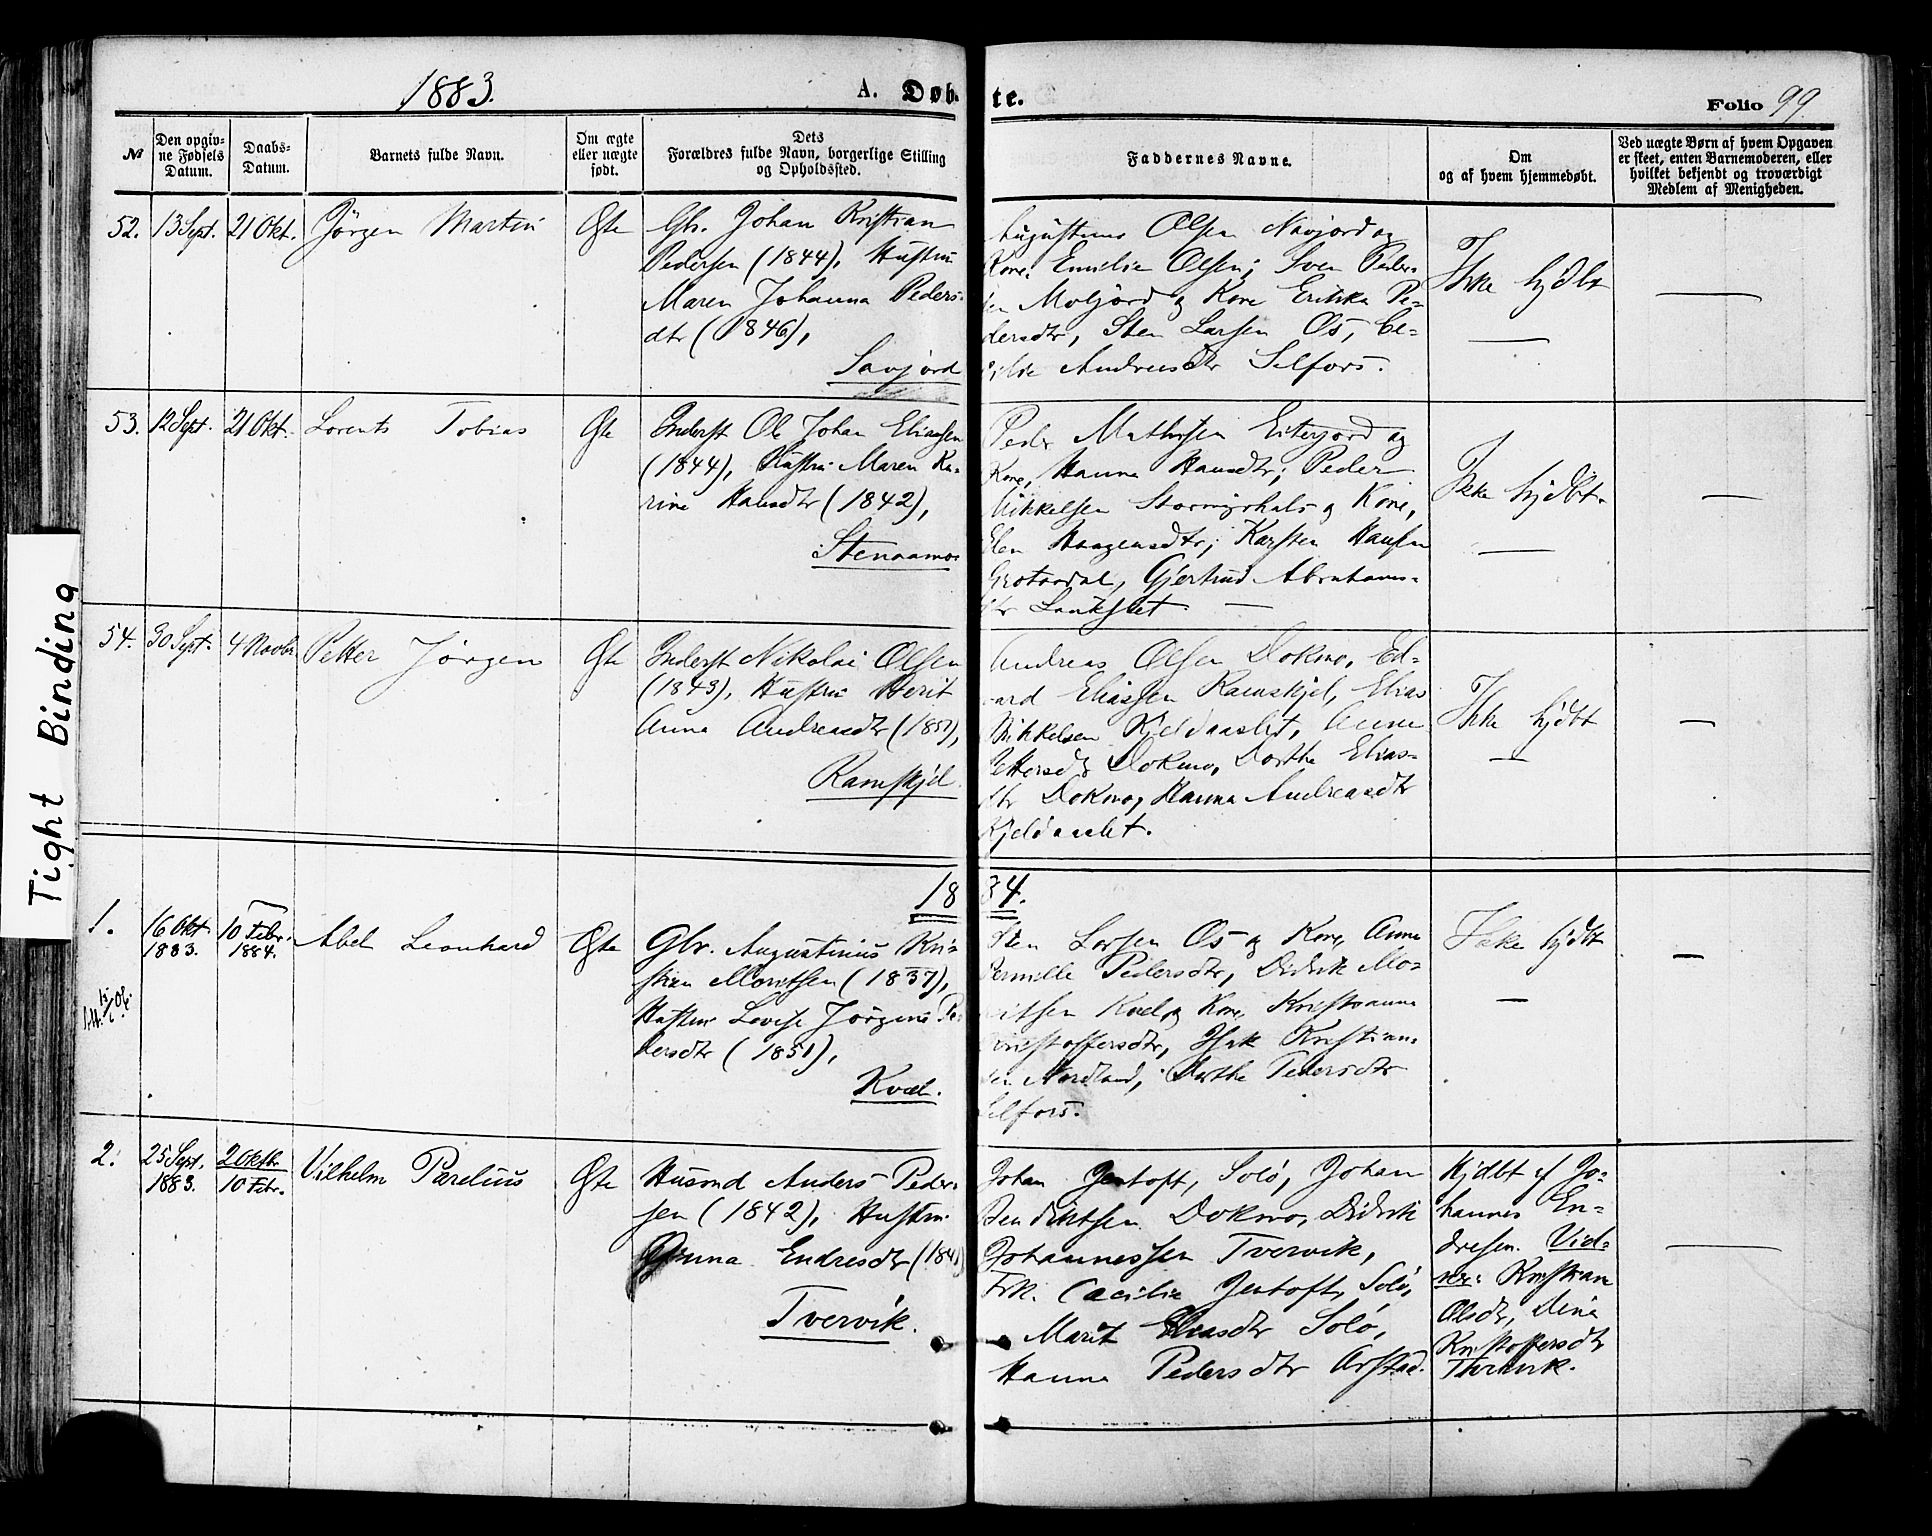 1883.
A. Døb-
te.
Folio 99.
№
Den opgiv-
ne Fødsels
Datum.
Daabs-
Datum.
Barnets fulde Navn.
Om ægte
eller uægte
født.
Dets
Forældres fulde Navn, borgerlige Stilling
og Opholdssted.
Faddernes Navne.
Om
og af hvem hjemmedøbt.
Ved uægte Børn af hvem Opgaven
er skeet, enten Barnemoderen, eller
hvilket bekjendt og troværdigt
Medlem af Menigheden.
52. 13 Sept. 21 Okt. Jörgen Martin Ægte
Gbr. Johan Kristian
Pedersen (1844), Hustru
Maren Johanna Peders-
dtr (1846),
Savjord
Augustinus Olsen Navjord og
Kone, Emilie Olsen; Sven Peder-
sen Moljord og Kone Erikka Pe-
dersdtr, Sten Larsen Os,
Andreasdtr Selfors.
Ikke hjdbt
—
53. 12 Sept. 21 Okt. Lorents Tobias Ægte
Inderst Ole Johan Eliassen
(1844), Hustru Maren Ka-
rine Hansdtr (1842),
Stenaamo
Peder Mathisen Eiterjord og
Kone, Hanna Hansdtr; Peder
Mikkelsen Stormyrhals og Kone,
Elen Haagensdtr; Karsten Hansen
Grotaadal, Gjertrud Abrahams-
dtr Lankslet —
Ikke hjdbt.
—
54. 30 Sept. 4 Novbr Petter Jörgen Ægte
Inderst Nikolai Olsen
(1843), Hustru Berit
Anna Andreasdtr (1851),
Ramskjel.
Andreas Olsen Dokmo, Ed-
vard Eliassen Ramskjel, Elias
Mikkelsen Kjeldaaslet, Anne
Pettersdtr Dokmo, Dorthe Elias-
dtr Dokmo, Hanna Andreasdtr
Kjeldaaslet.
Ikke hjdbt
—
1884.
1. 16 Okt. 1883. 10 Febr. 1884. Abel Leonhard Ægte
Gbr. Augustinius Kri-
stian Moritsen (1837),
Hustru Lovise Jörgine Pe-
dersdtr (1851),
Kvæl.
Sten Larsen Os og Kone Anne
Pernille Pedersdtr, Didrik Mo-
ritsen Kvæl og Kone Kristianna
Kristoffersdtr, Isak Kristian-
sen Nordland, Dorthe Pedersdtr
Selfors.
Ikke hjdbt
—
2. 25 Sept. 1883. 2 Oktbr. 10 Febr. Vilhelm Parelius Ægte
Husmd Anders Peder-
sen (1842), Hustru
Anna Endresdtr (184
Tvervik.
Johan Jentoft, Solö, Johan
Bendiktsen Dokmo, Didrik
Johannessen Tvervik,
Frk. Cæcilie Jentoft, Solö,
Marit Eliasdtr Solö,
Hanna Pedersdtr Arstad.
Hjdbt af Jo-
hannes En-
dresen. Vid-
ner: Kristiane
Olsdtr, Dina
Kristoffersdtr
Tvervik.
Tight Binding